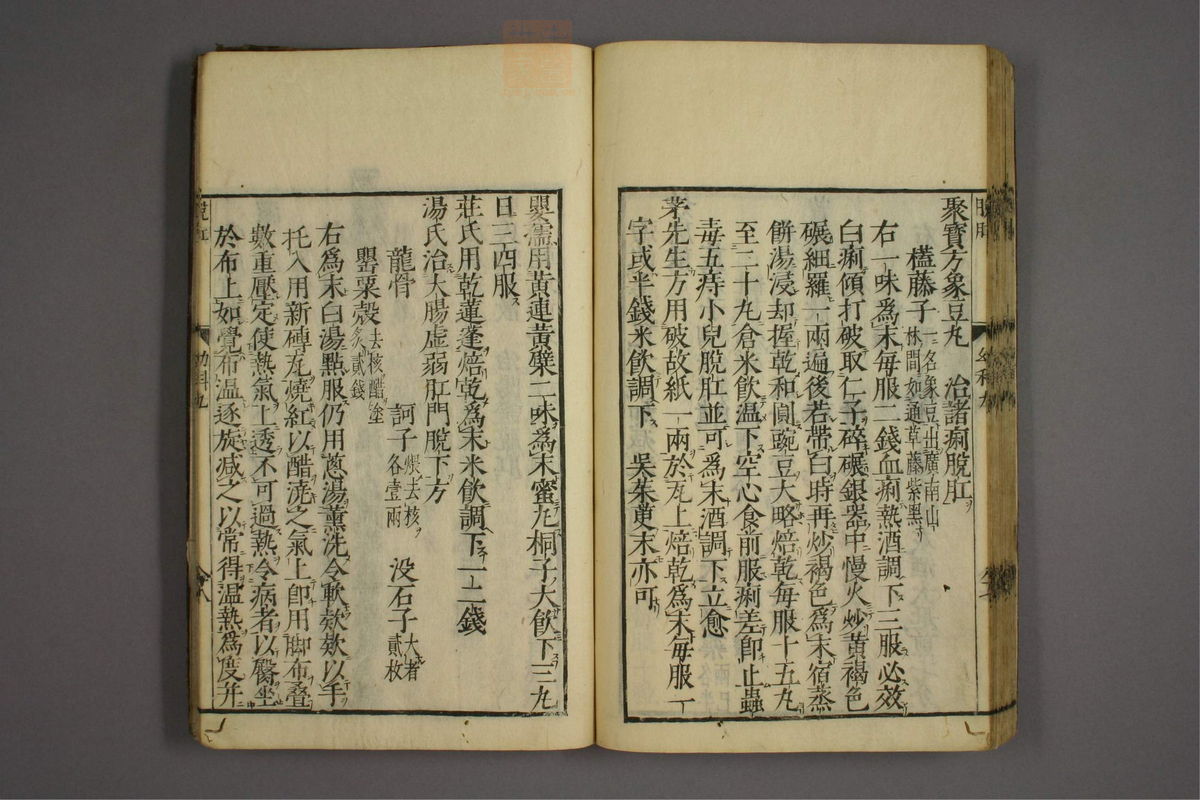 聚寶方象豆丸　治諸痢脫肛
榼藤子一名象豆出廣南山林間如通草藤紫黑
右一味爲末每服二錢血痢熱酒調下三服必效
白痢傾打破取仁子碎碾銀器中慢火炒黃褐色
碾細羅一兩遍後若帶白時再炒褐色爲末宿蒸
餅湯浸却握乾和圓豌豆大略焙乾每服十五丸
至二十丸倉米飮溫下空心食前服痢差卽止蟲
毒五痔小兒脫肛並可爲末酒調下立愈
茅先生方用破故紙一兩於瓦上焙乾爲末每服一
字或半錢米飮調下　吳茱萸末亦可
嬰孺用黃連黃蘗二味爲末蜜丸桐子大飮下三丸
日三四服
莊氏用乾蓮蓬焙乾爲末米飮調下一二錢
湯氏治大腸虛弱肛門脫下方
龍骨　訶子去核各壹兩　没石子大者貳枚
罌粟殼去核醋塗炙貳錢
右爲末白湯點服仍用蔥湯薰洗令軟欵欵以手
托入用新磚瓦燒紅以醋澆之氣上卽用脚布疊
數重壓定使熱氣上透不可過熱令病者以臀坐
於布上如覺布溫逐旋減之以常得溫熱爲度幷
幼科九